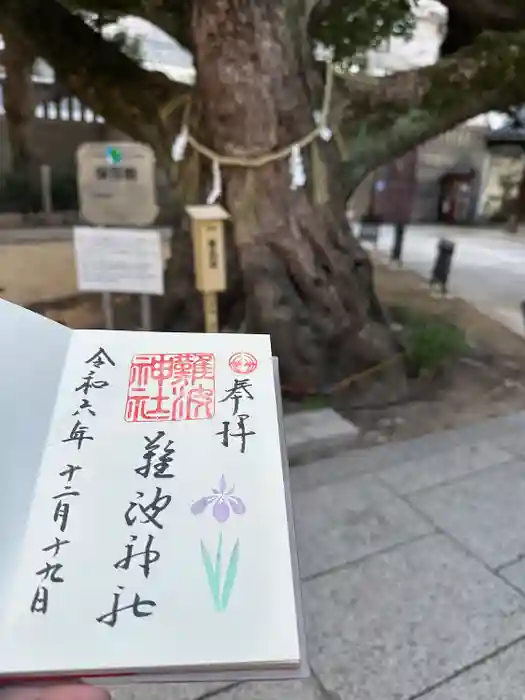 奉拝
難波
神社
難波神社
令和六年十二月十九日
保存樹